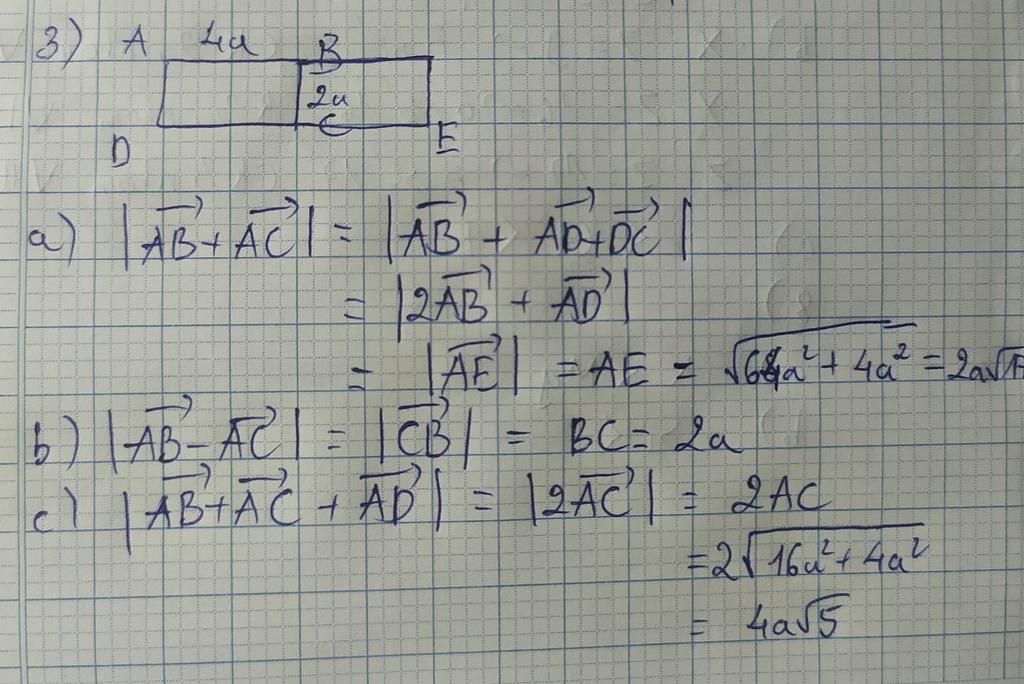 3) A 4a B
2a
C
D E
a) |\overrightarrow{AB} + \overrightarrow{AC}| = |\overrightarrow{AB} + \overrightarrow{AD} + \overrightarrow{DC}|
= |2\overrightarrow{AB} + \overrightarrow{AD}|
= |\overrightarrow{AE}| = AE = \sqrt{64a^2 + 4a^2} = 2a
b) |\overrightarrow{AB} - \overrightarrow{AC}| = |\overrightarrow{CB}| = BC = 2a
c) |\overrightarrow{AB} + \overrightarrow{AC} + \overrightarrow{AD}| = |2\overrightarrow{AC}| = 2AC
= 2\sqrt{16a^2 + 4a^2}
= 4a\sqrt{5}